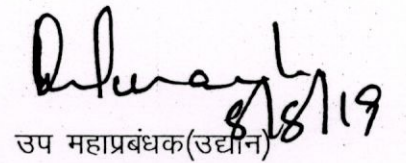 8/8/19
उप महाप्रबंधक(उद्यान)